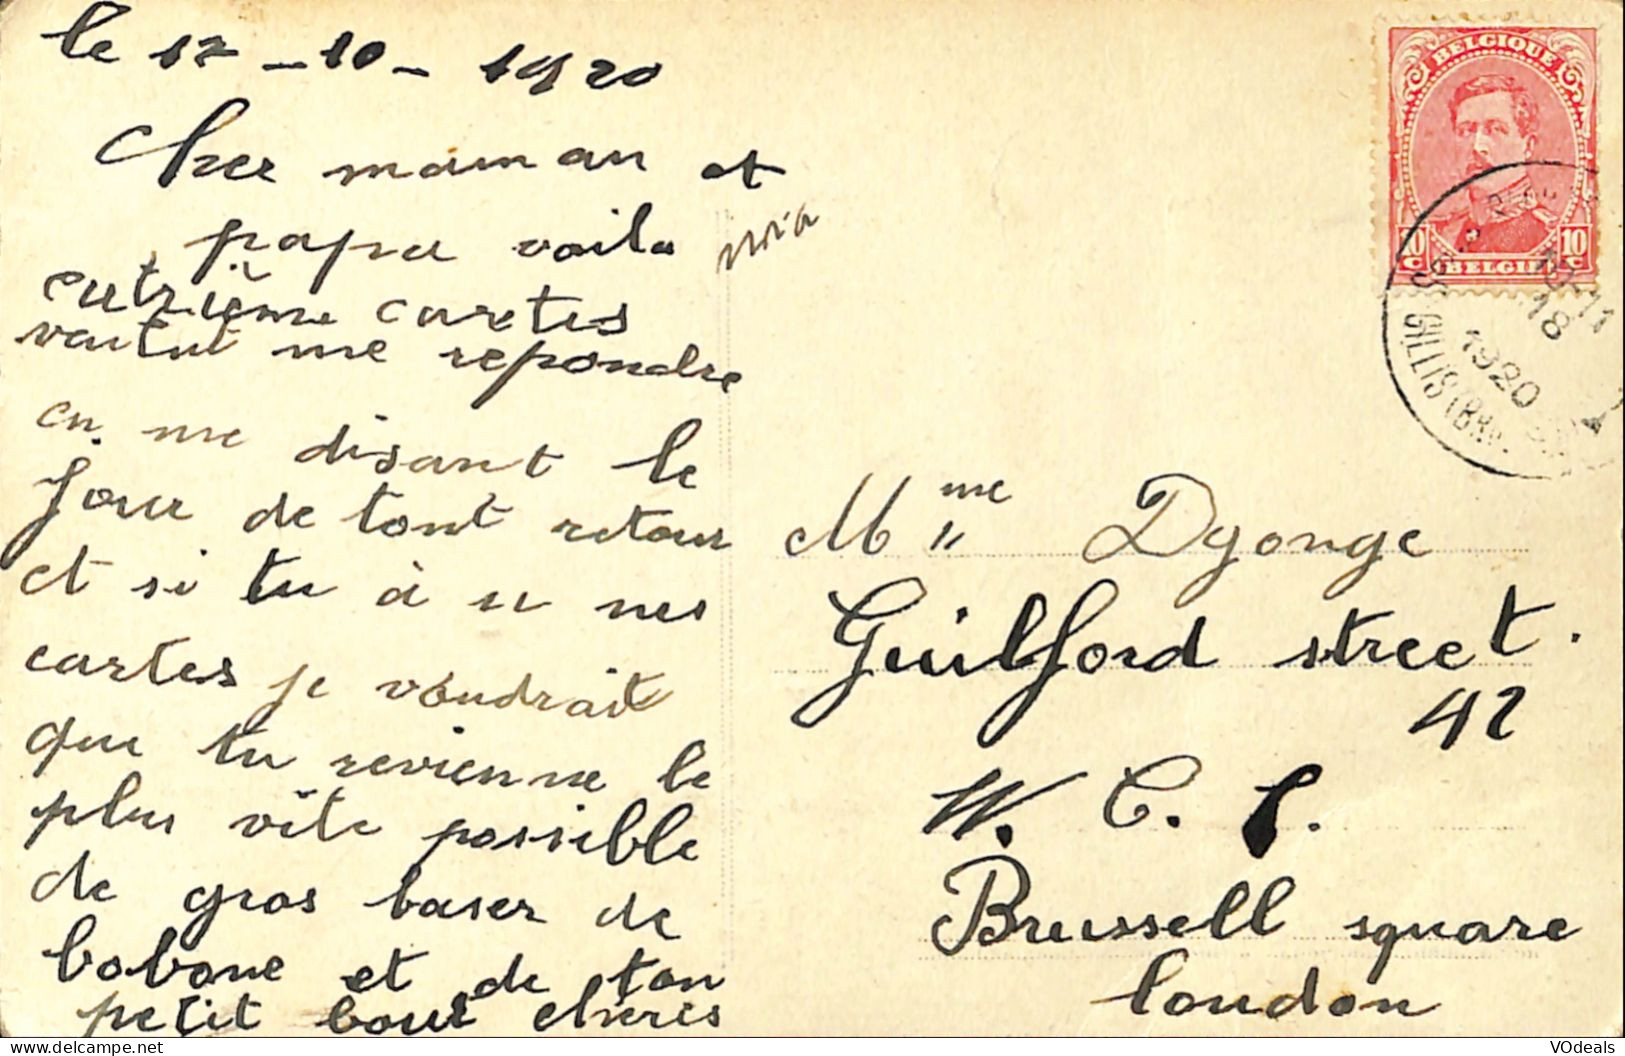 le 17 - 10 - 1920
Cher maman et
papa voila
catrième cartes
me repondre
en me disant le
jour de tont retour
et si tu à u mes
cartes je voudrait
que tu revienne le
plus vite possible
de gros baser de
bobone et de ton
petit bout cheris
BELGIQUE
10 C
10 C
BELGIË
ST GILLIS (BRU.
11
18
1920
Mme Dyonge
Guilford street.
42
W. C. 1.
Brussell square
London
VOdeals